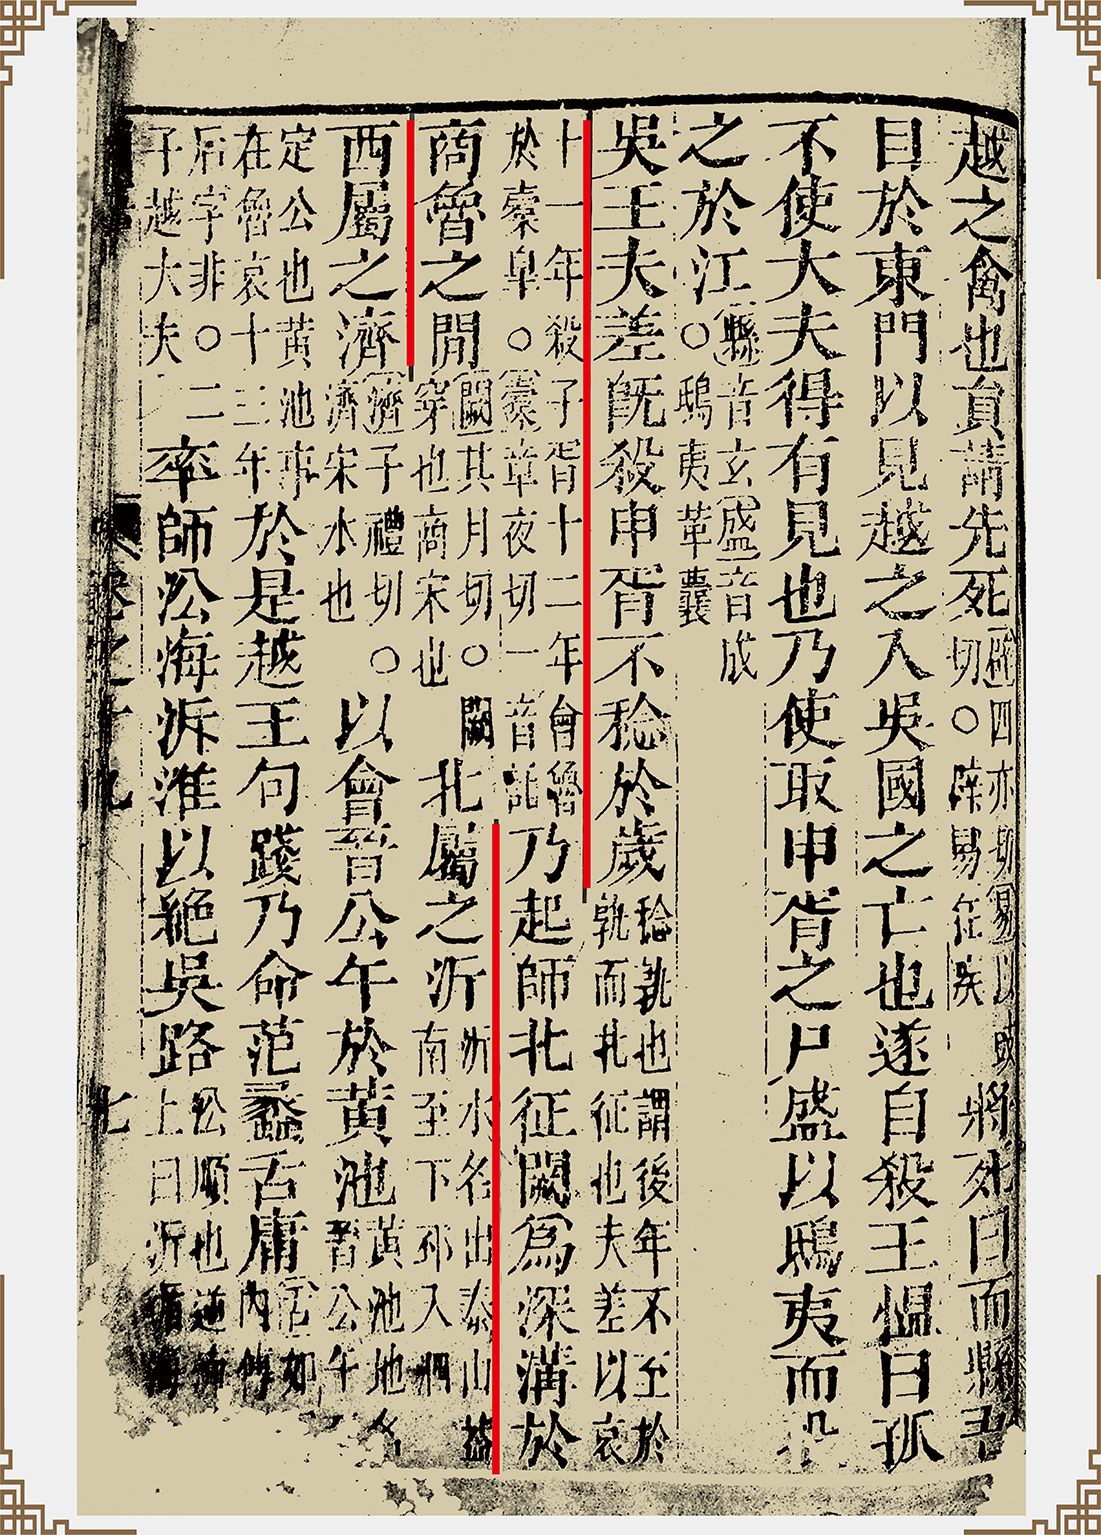 越之禽也員請先死辟四亦切易以豉切○辟易狂疾將死曰而縣吾
目於東門以見越之入吳國之亡也遂自殺王慍曰孤
不使大夫得有見也乃使取申胥之尸盛以鴟夷而投
之於江縣音玄盛音成○鴟夷革囊
吳王夫差旣殺申胥不稔於歲稔孰也謂後年不至於孰而北征也夫差以哀
十一年殺子胥十二年會魯於橐臯○橐章夜切一音託乃起師北征闕爲深溝於
商魯之間闕其月切○闕穿也商宋也北屬之沂沂水名出泰山蓋南至下邳入泗
西屬之濟濟子禮切○濟宋水也以會晉公午於黃池黃池地名晉公午
定公也黃池事在魯哀十三年於是越王句踐乃命范蠡舌庸舌如字內傳
后字非○二子越大夫率師沿海泝淮以絕吳路沿順也逆流上曰泝循海
卷之十九 七